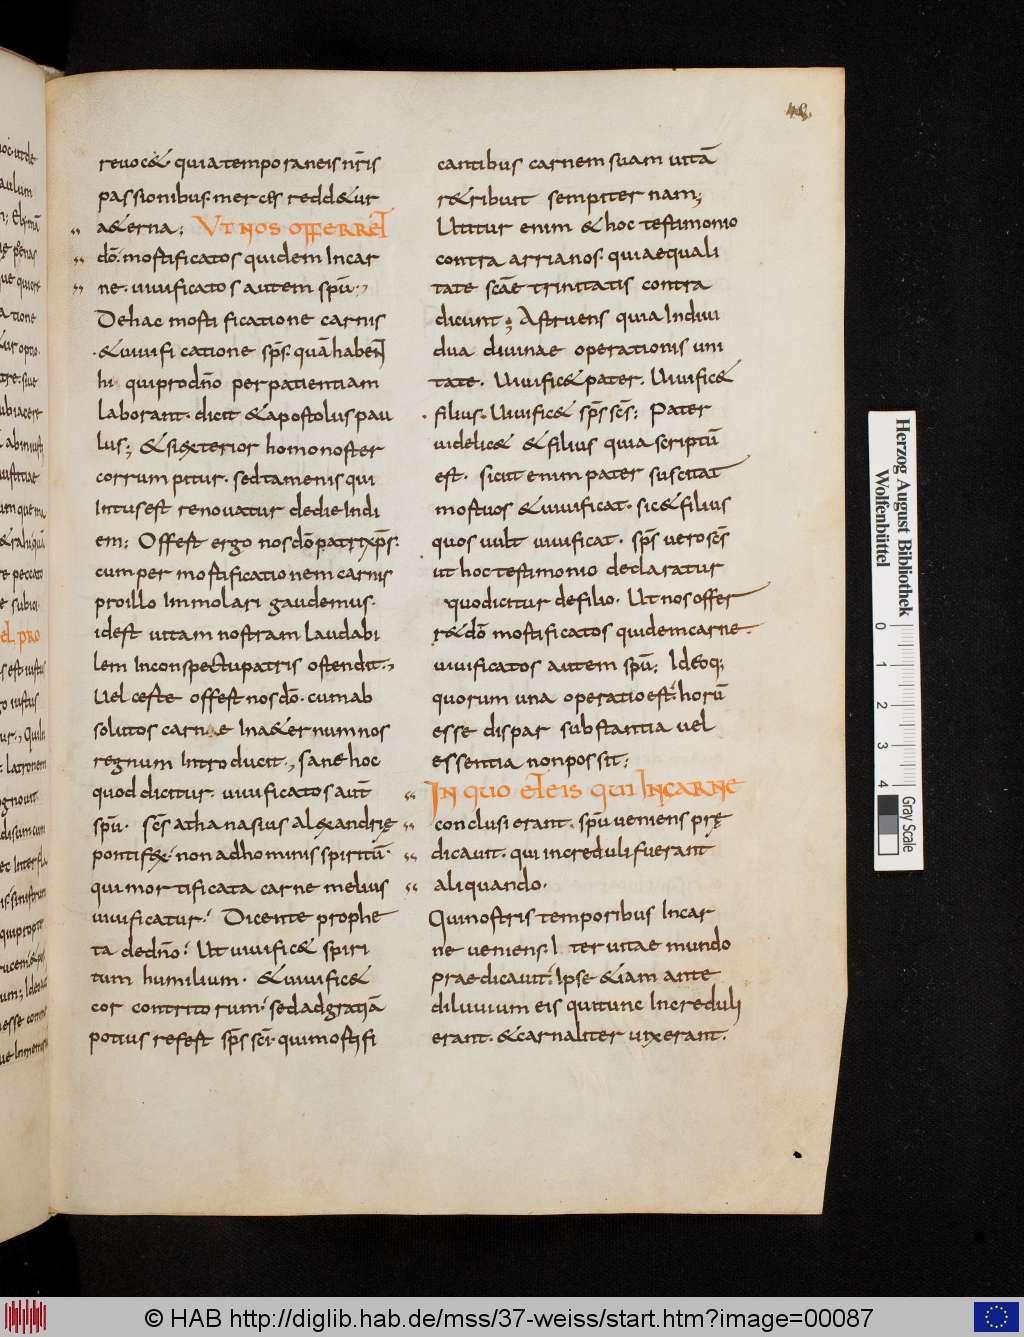 48
reuoc& quia temporaneis nr̄is
passionibus merces redd&ur
a&erna; Ut nos offerret
dō. mortificatos quidem incar
ne. uiuificatos autem spū;
De hac mortificatione carnis
& uiuificatione sps̄. quā habent
hi qui pro dn̄o per patientiam
laborant. dicit & apostolus pau
lus; & si exterior homo noster
corrumpitur. sed tamen is qui
intus est renouatur de die indi
em; Offert ergo nos dō patri xps̄.
cum per mortificationem carnis
pro illo immolari gaudemus.
id est uitam nostram laudabi
lem in conspectu patris ostendit;
Uel certe offert nos dō. cum ab
solutos carne in a&ernum nos
regnum introducit; sane hoc
quod dicitur. uiuificatos aut̄
spū. sc̄s athanasius alexandrię
pontifex. non ad hominis spiritū.
qui mortificata carne melius
uiuificatur. Dicente prophe
ta de dn̄o. Ut uiuific& spiri
tum humilium. & uiuific&
cor contritorum. sed ad gratiā
potius refert sps̄ sc̄i. qui mortifi
cantibus carnem suam uitā
r&ribuit sempiternam;
Utitur enim & hoc testimonio
contra arrianos. qui aequali
tate sc̄ae trinitatis contra
dicunt; Astruens quia indiui
dua diuinae operationis uni
tate. Uiuific& pater. Uiuific&
filius. Uiuific& sps̄ sc̄s; Pater
uidelic& & filius quia scriptū
est. sicut enim pater suscitat
mortuos & uiuificat. sic & filius
quos uult uiuificat. sps̄ uero sc̄s
ut hoc testimonio declaratur
quo dicitur de filio. Ut nos offer
r& dō mortificatos quidem carne.
uiuificatos autem spū; Ideoq;
quorum una operatio est. horū
esse dispar substantia uel
essentia non possit;
In quo & eis qui in carne
conclusi erant. spū ueniens prę
dicauit. qui increduli fuerant
aliquando.
Qui nostris temporibus in car
ne ueniens. iter uitae mundo
praedicauit. ipse & iam ante
diluuium eis qui tunc increduli
erant. & carnaliter uixerant.
Herzog August Bibliothek
Wolfenbüttel
0 1 2 3 4
Gray Scale
© HAB http://diglib.hab.de/mss/37-weiss/start.htm?image=00087